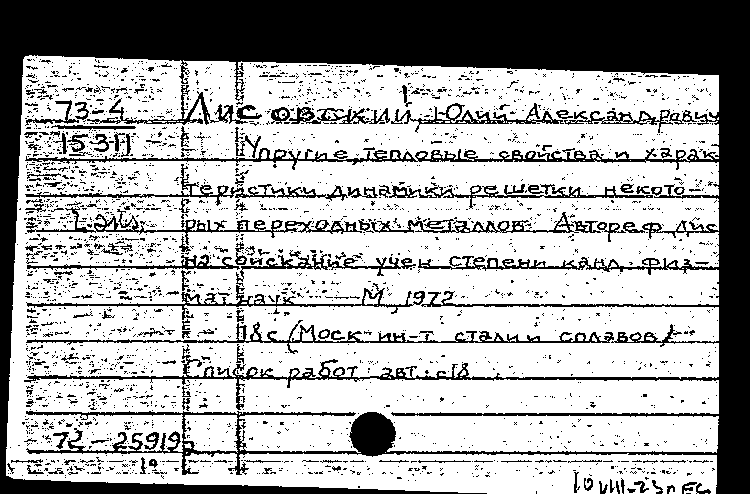 73-4
15311
Лисовский, Юлий Александрович
Упругие, тепловые свойства и харак-
теристики динамики решетки некото-
рых переходных металлов. Автореф дис
на соискание учен степени канд. физ-
мат наук — М, 1972
18с (Моск ин-т стали и сплавов)
Список работ авт.: с18
72-25919